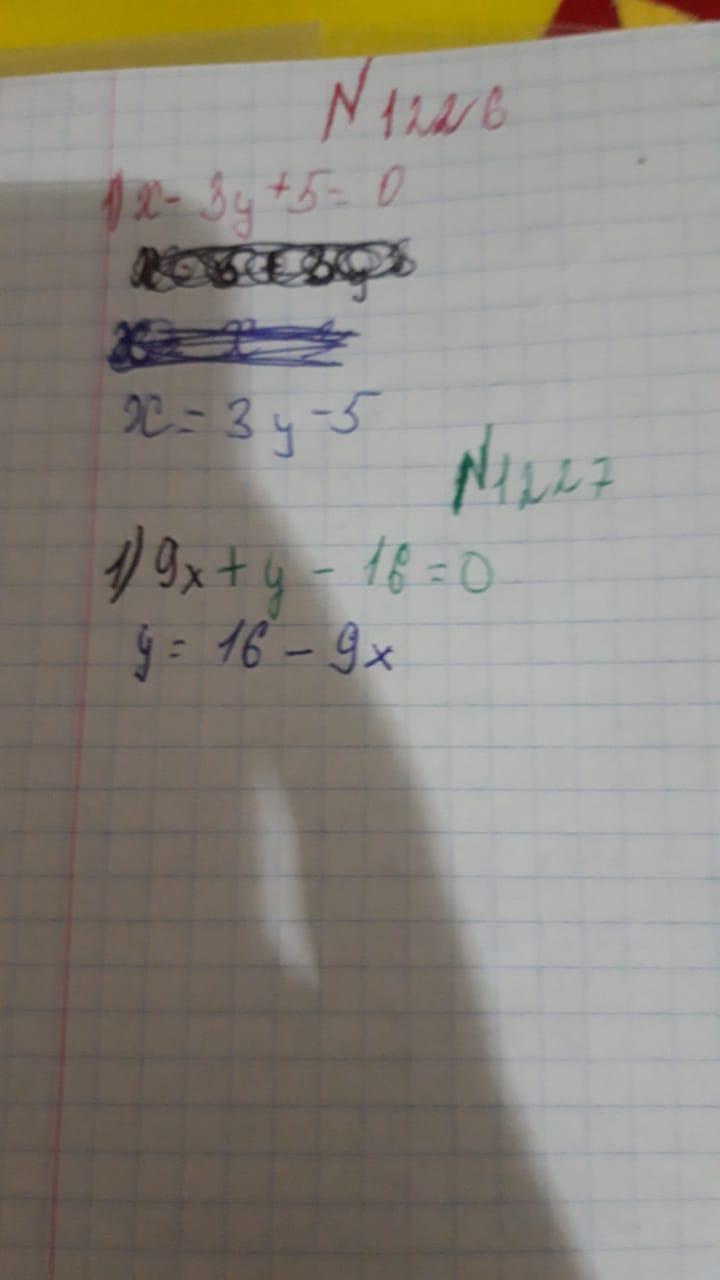 N 1226
1) x - 3y + 5 = 0
x = 3y - 5
N 1227
1) 9x + y - 16 = 0
y = 16 - 9x